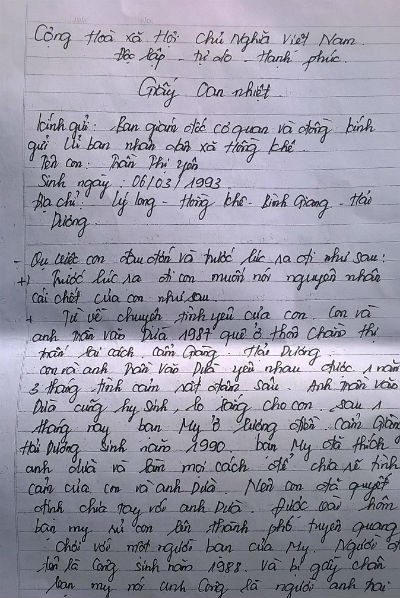 Cộng Hoà xã Hội Chủ Nghĩa Việt Nam.
Độc lập - tự do - Hạnh phúc.
Giấy Oan nhiệt
Kính gửi: Ban giám đốc cơ quan và đồng kính
gửi Uỷ ban nhân dân xã Hồng Khê.
Tên con: Trần Thị Yến
Sinh ngày: 06/03/1993
Địa chỉ: Lý long - Hồng Khê - Bình Giang - Hải
Dương.
- Qu việc con đau đớn và trước lúc ra đi như sau:
+) Trước lúc ra đi con muốn nói nguyên nhân
cái chết của con như sau.
+ Tự về chuyện tình yêu của con. Con và
anh Trần văn Duà 1987 quê ở thôn Chằm thị
trấn lai cách. Cẩm Giàng. Hải Dương.
con và anh Trần văn Duà yêu nhau được 1 năm
3 tháng tình cảm rất thắm sâu. Anh Trần văn
Duà cũng hy sinh, lo lắng cho con. Sau 1
tháng nay bạn My ở lương điền. Cẩm Giàng
Hải Dương sinh năm 1990. bạn My đã thích
anh Duà và làm mọi cách để chia rẽ tình
cảm của con và anh Duà. Nên con đã quyết
định chia tay với anh Duà. Được vài hôm
bạn my rủ con lên thành phố tuyên quang
chơi với một người bạn của My. Người đó
tên là Công sinh năm 1988. Và bị gãy chân
bạn my nói anh Công là người anh trai